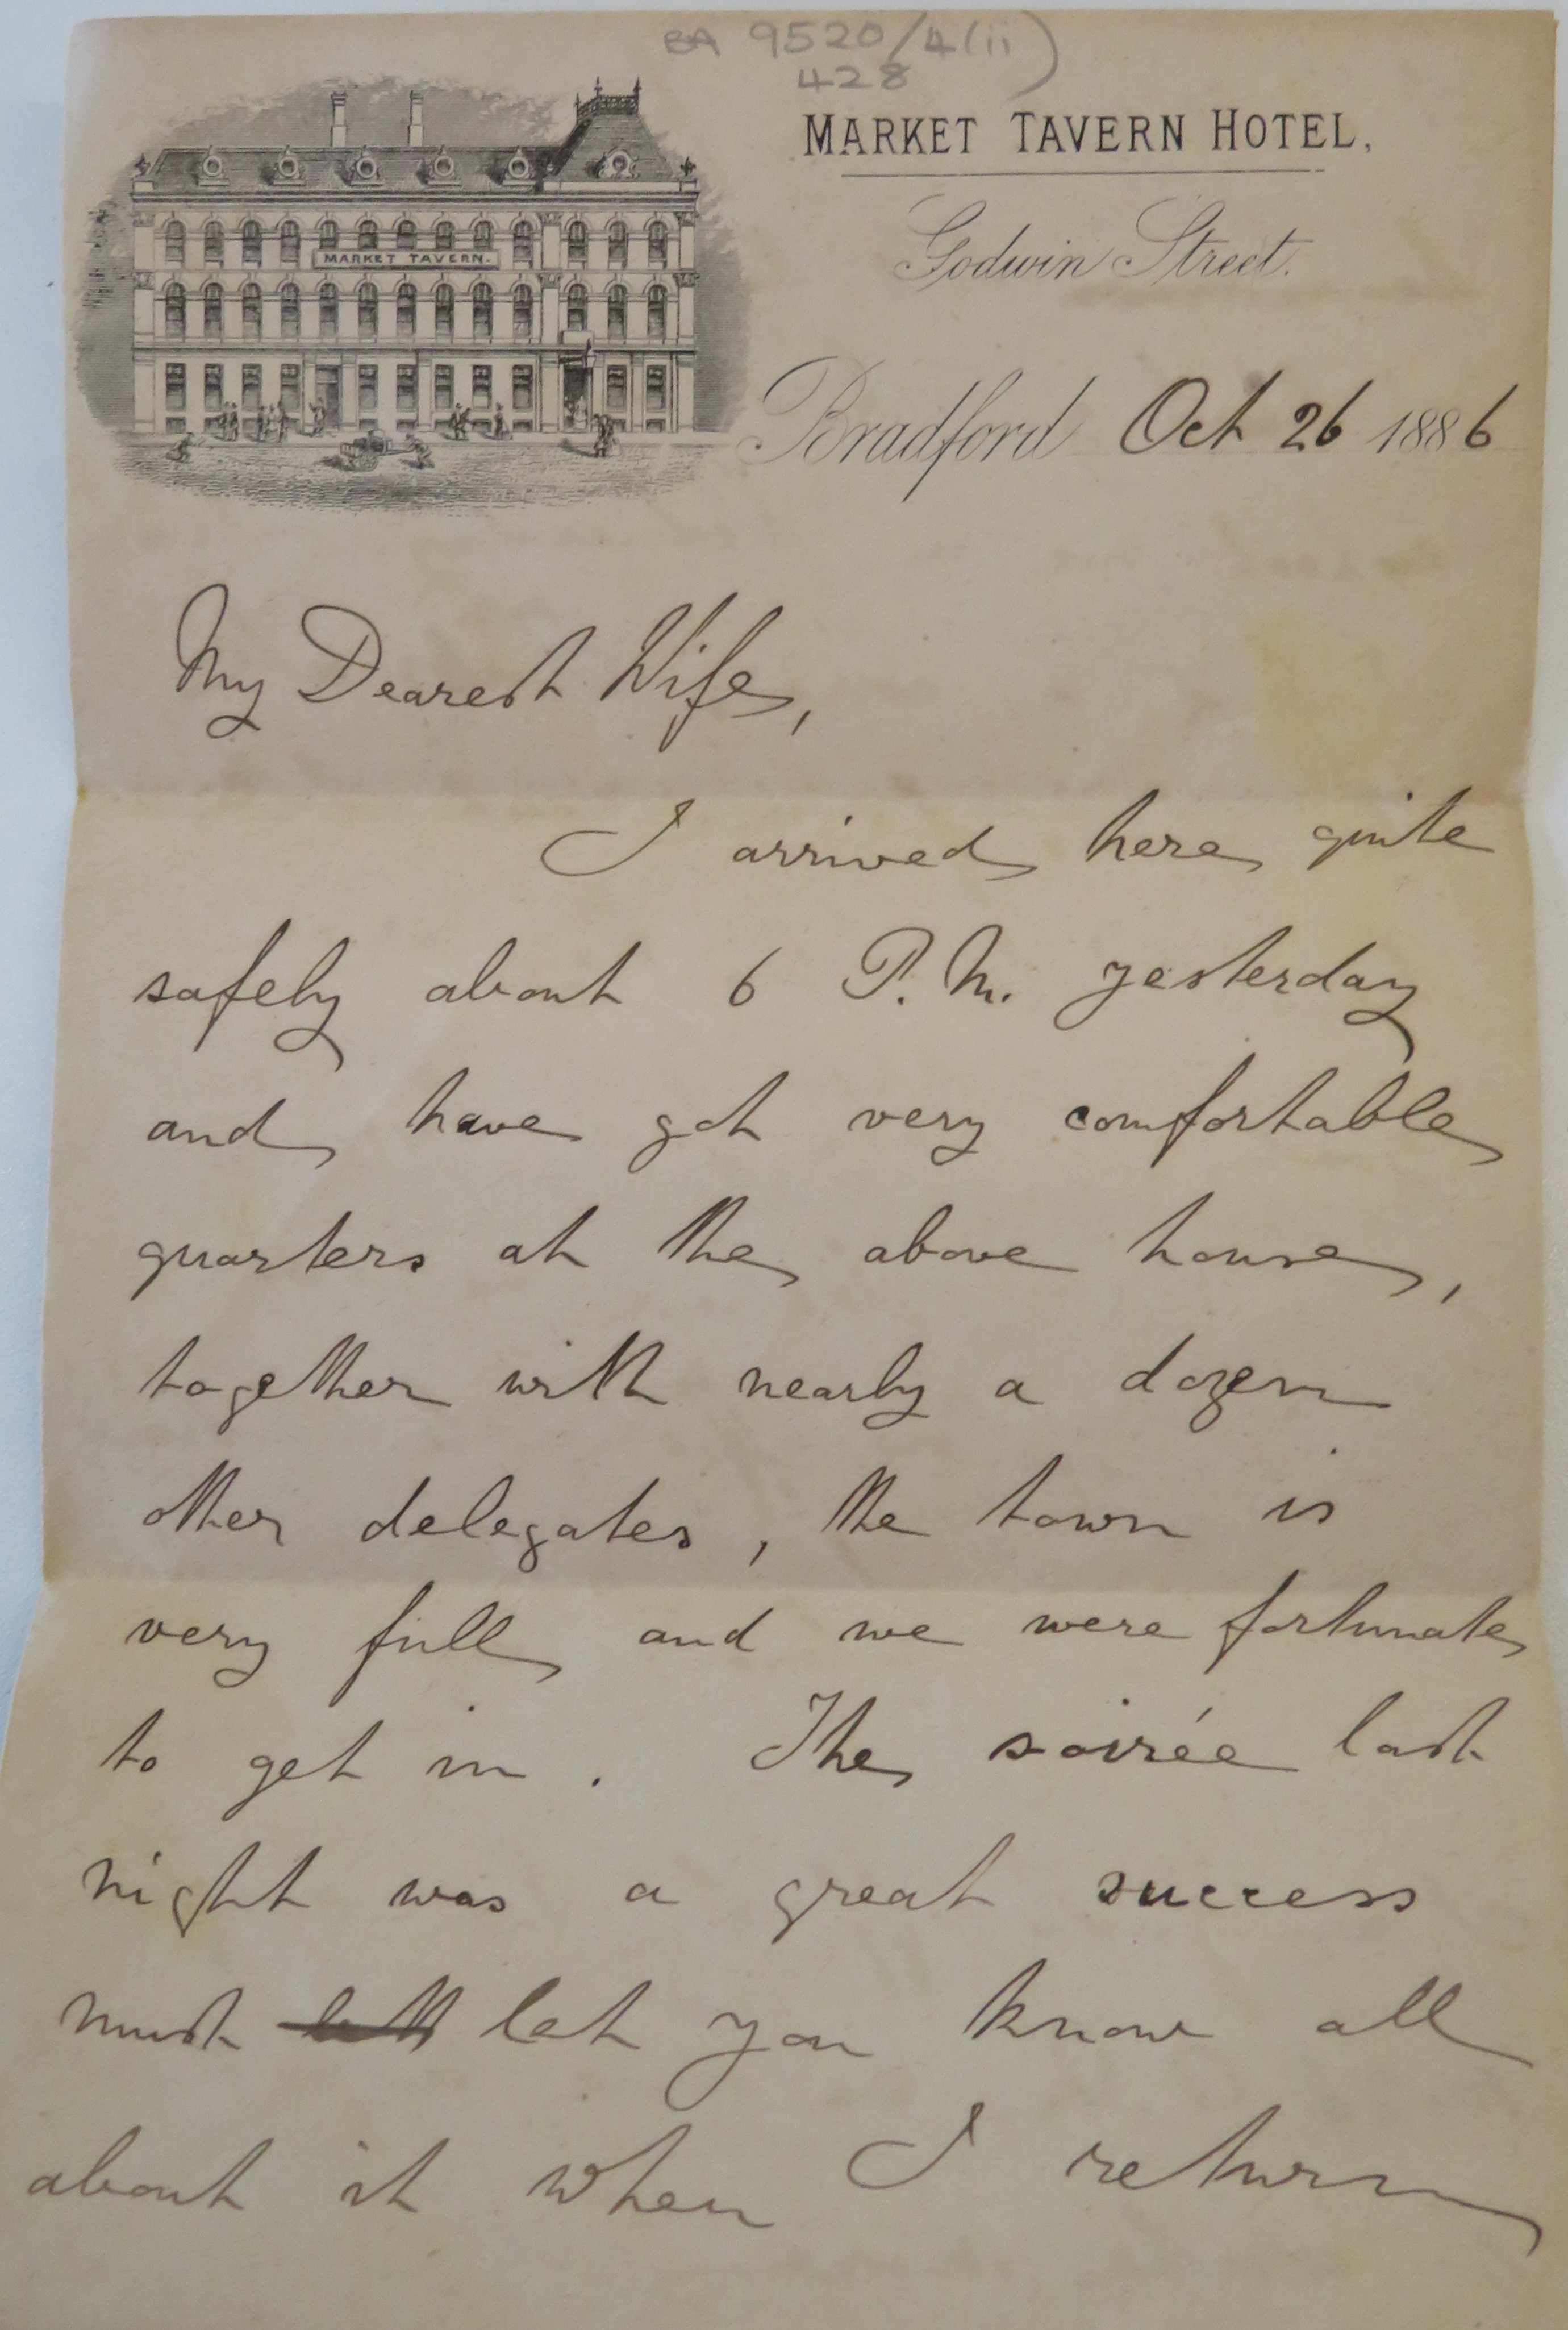 BA 9520/4(ii)
428
MARKET TAVERN HOTEL,
MARKET TAVERN.
Godwin Street.
Bradford Oct 26 1886
My Dearest Wife,
I arrived here quite
safely about 6 P.M. yesterday
and have got very comfortable
quarters at the above house,
together with nearly a dozen
other delegates, the town is
very full and we were fortunate
to get in. The soirée last
night was a great success
must let you know all
about it when I return